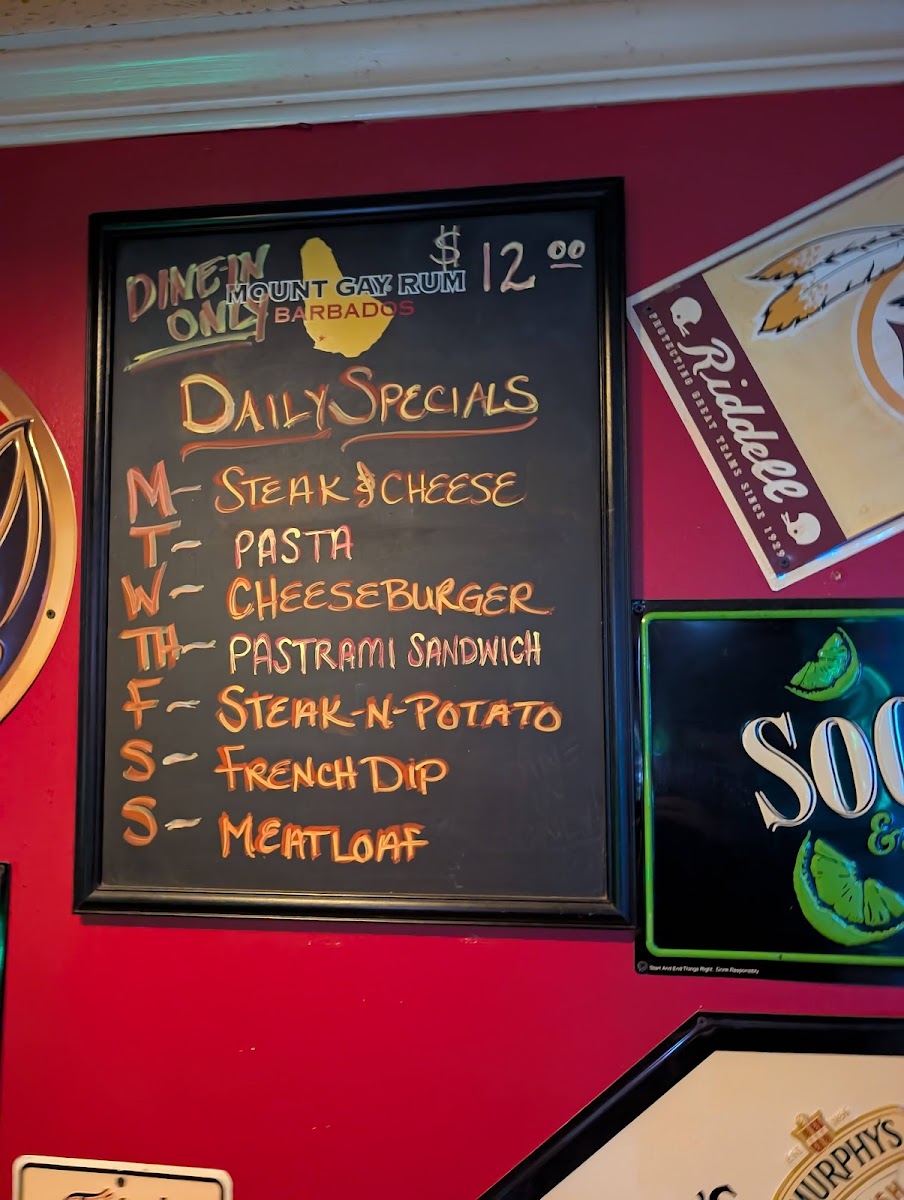 DINE-IN
ONLY
MOUNT GAY RUM
BARBADOS
$12.00
DAILY SPECIALS
M- STEAK & CHEESE
T- PASTA
W- CHEESEBURGER
TH- PASTRAMI SANDWICH
F- STEAK-N-POTATO
S- FRENCH DIP
S- MEATLOAF
Riddell
PROTECTING GREAT TEAMS SINCE 1929
SOC
&
Start And End Things Right. Drink Responsibly.
MURPHY'S